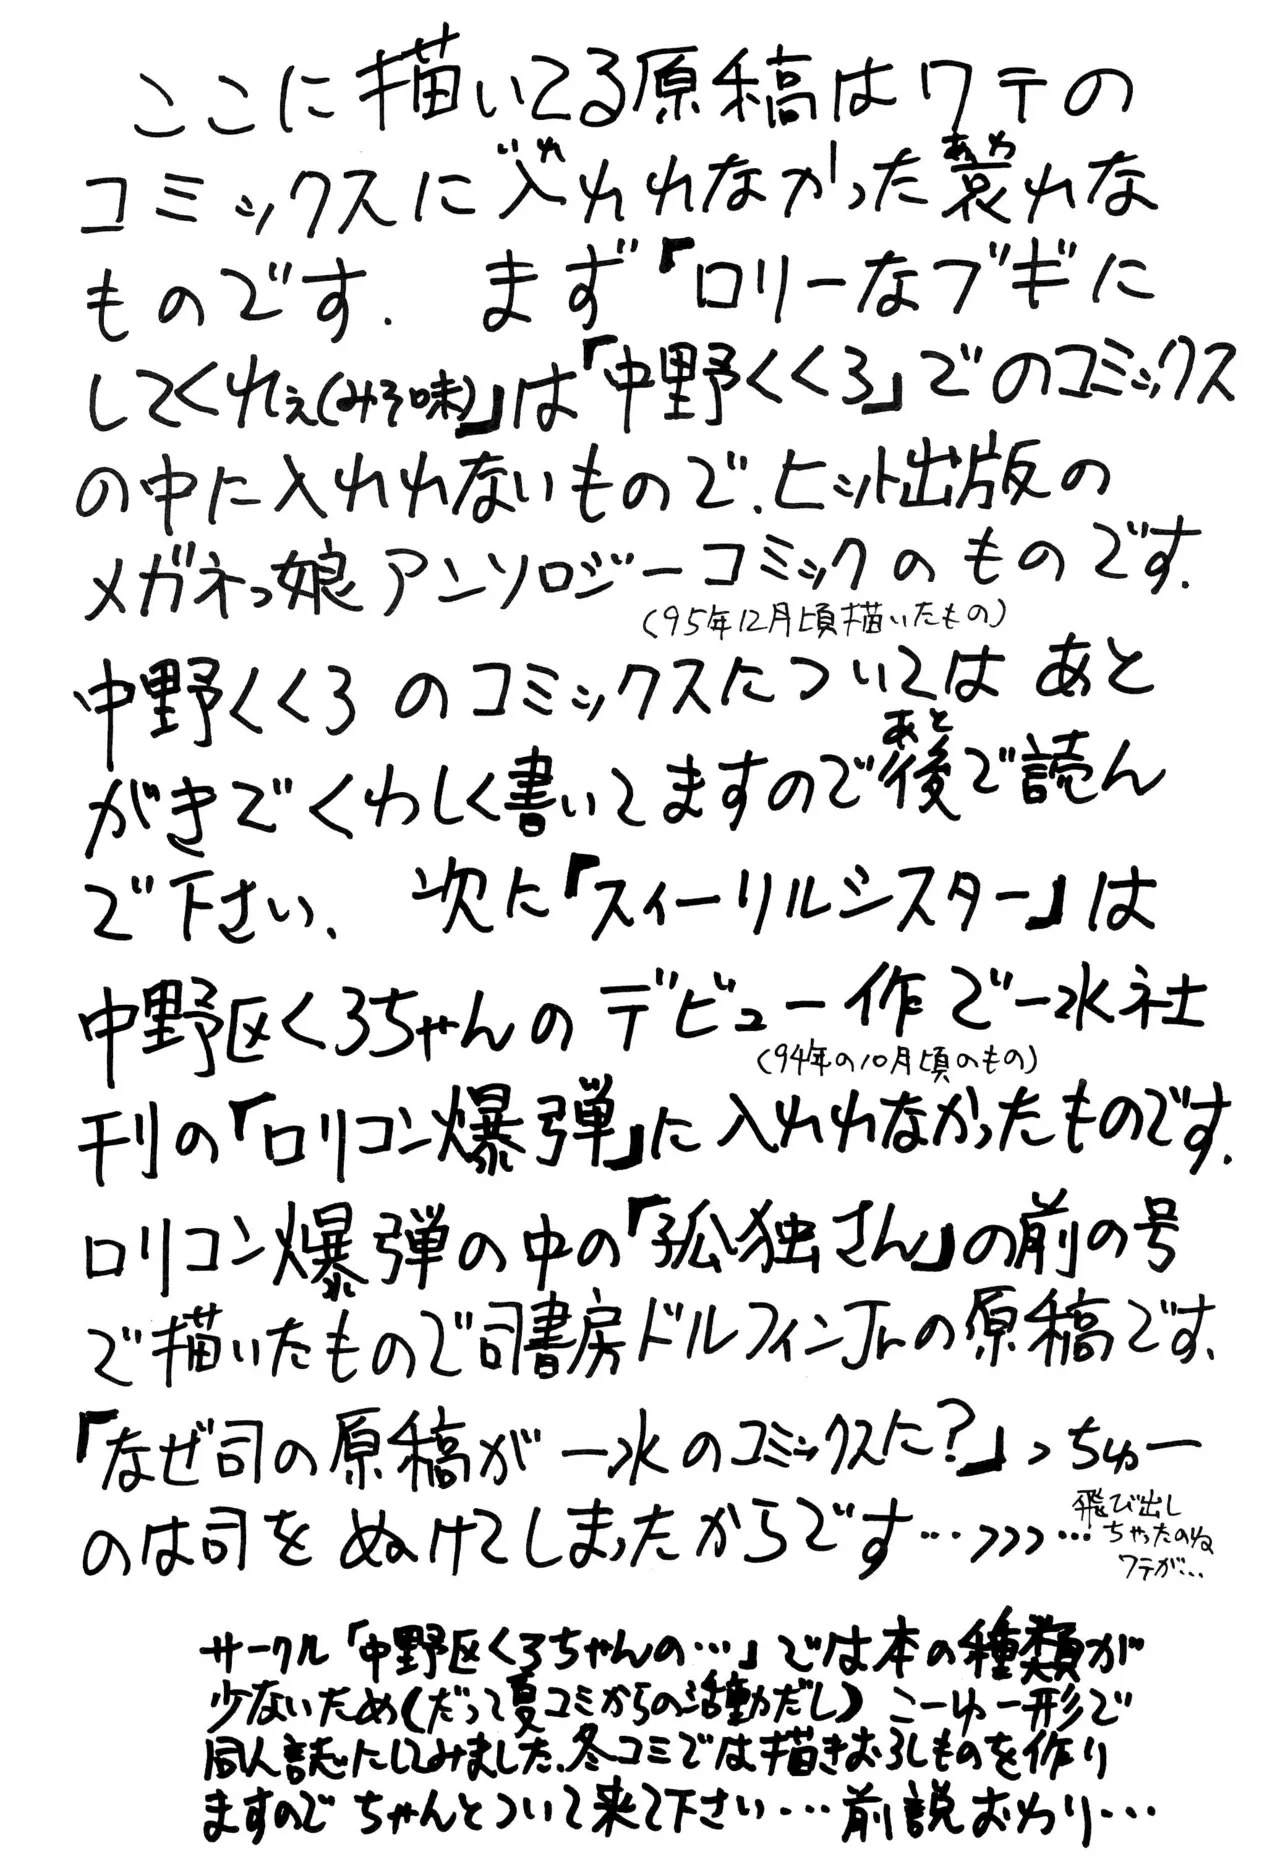 ここに描いてる原稿はワテの
コミックスに入れれなかった哀れな
ものです. まず「ロリーなブギに
してくれぇ(みそ味)」は「中野くくろ」でのコミックス
の中に入れれないもので.ヒット出版の
メガネっ娘アンソロジーコミックのものです.
(95年12月頃描いたもの)
中野くくろのコミックスについてはあと
がきでくわしく書いてますので後で読ん
で下さい. 次に「スィーリルシスター」は
中野区くろちゃんのデビュー作で一水社
(94年の10月頃のもの)
刊の「ロリコン爆弾」に入れれなかったものです.
ロリコン爆弾の中の「孤独さん」の前の号
で描いたもので司書房ドルフィンJrの原稿です、
「なぜ司の原稿が一水のコミックスに?」っちゅー
のは司をぬけてしまったからです…>>>…
飛び出し
ちゃったのね
ワテが…
サークル「中野区くろちゃんの…」では本の種類が
少ないため(だって夏コミからの活動だし) こーゆー形で
同人誌にしてみました.冬コミでは描きおろしものを作り
ますのでちゃんとついて来て下さい…前説おわり…